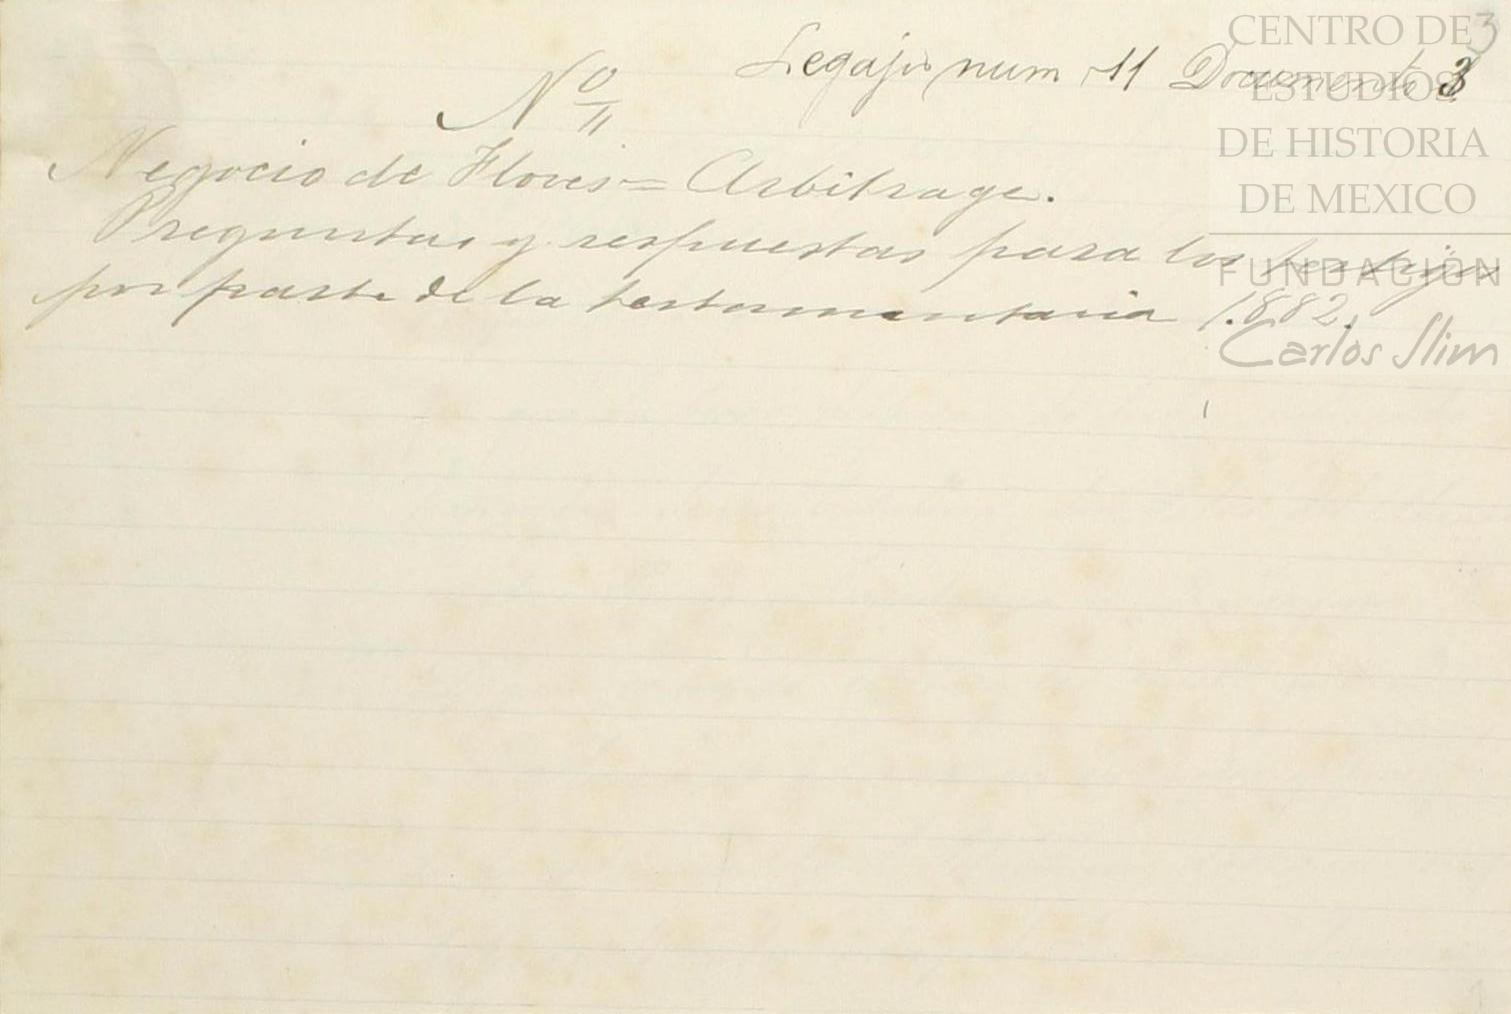 Legajo num 11 Documento 3
Nº 11
Negocio de Flores = Arbitrage.
Preguntas y respuestas para los testigos
por parte de la testamentaria 1.882.
CENTRO DE
ESTUDIOS
DE HISTORIA
DE MEXICO
FUNDACIÓN
Carlos Slim